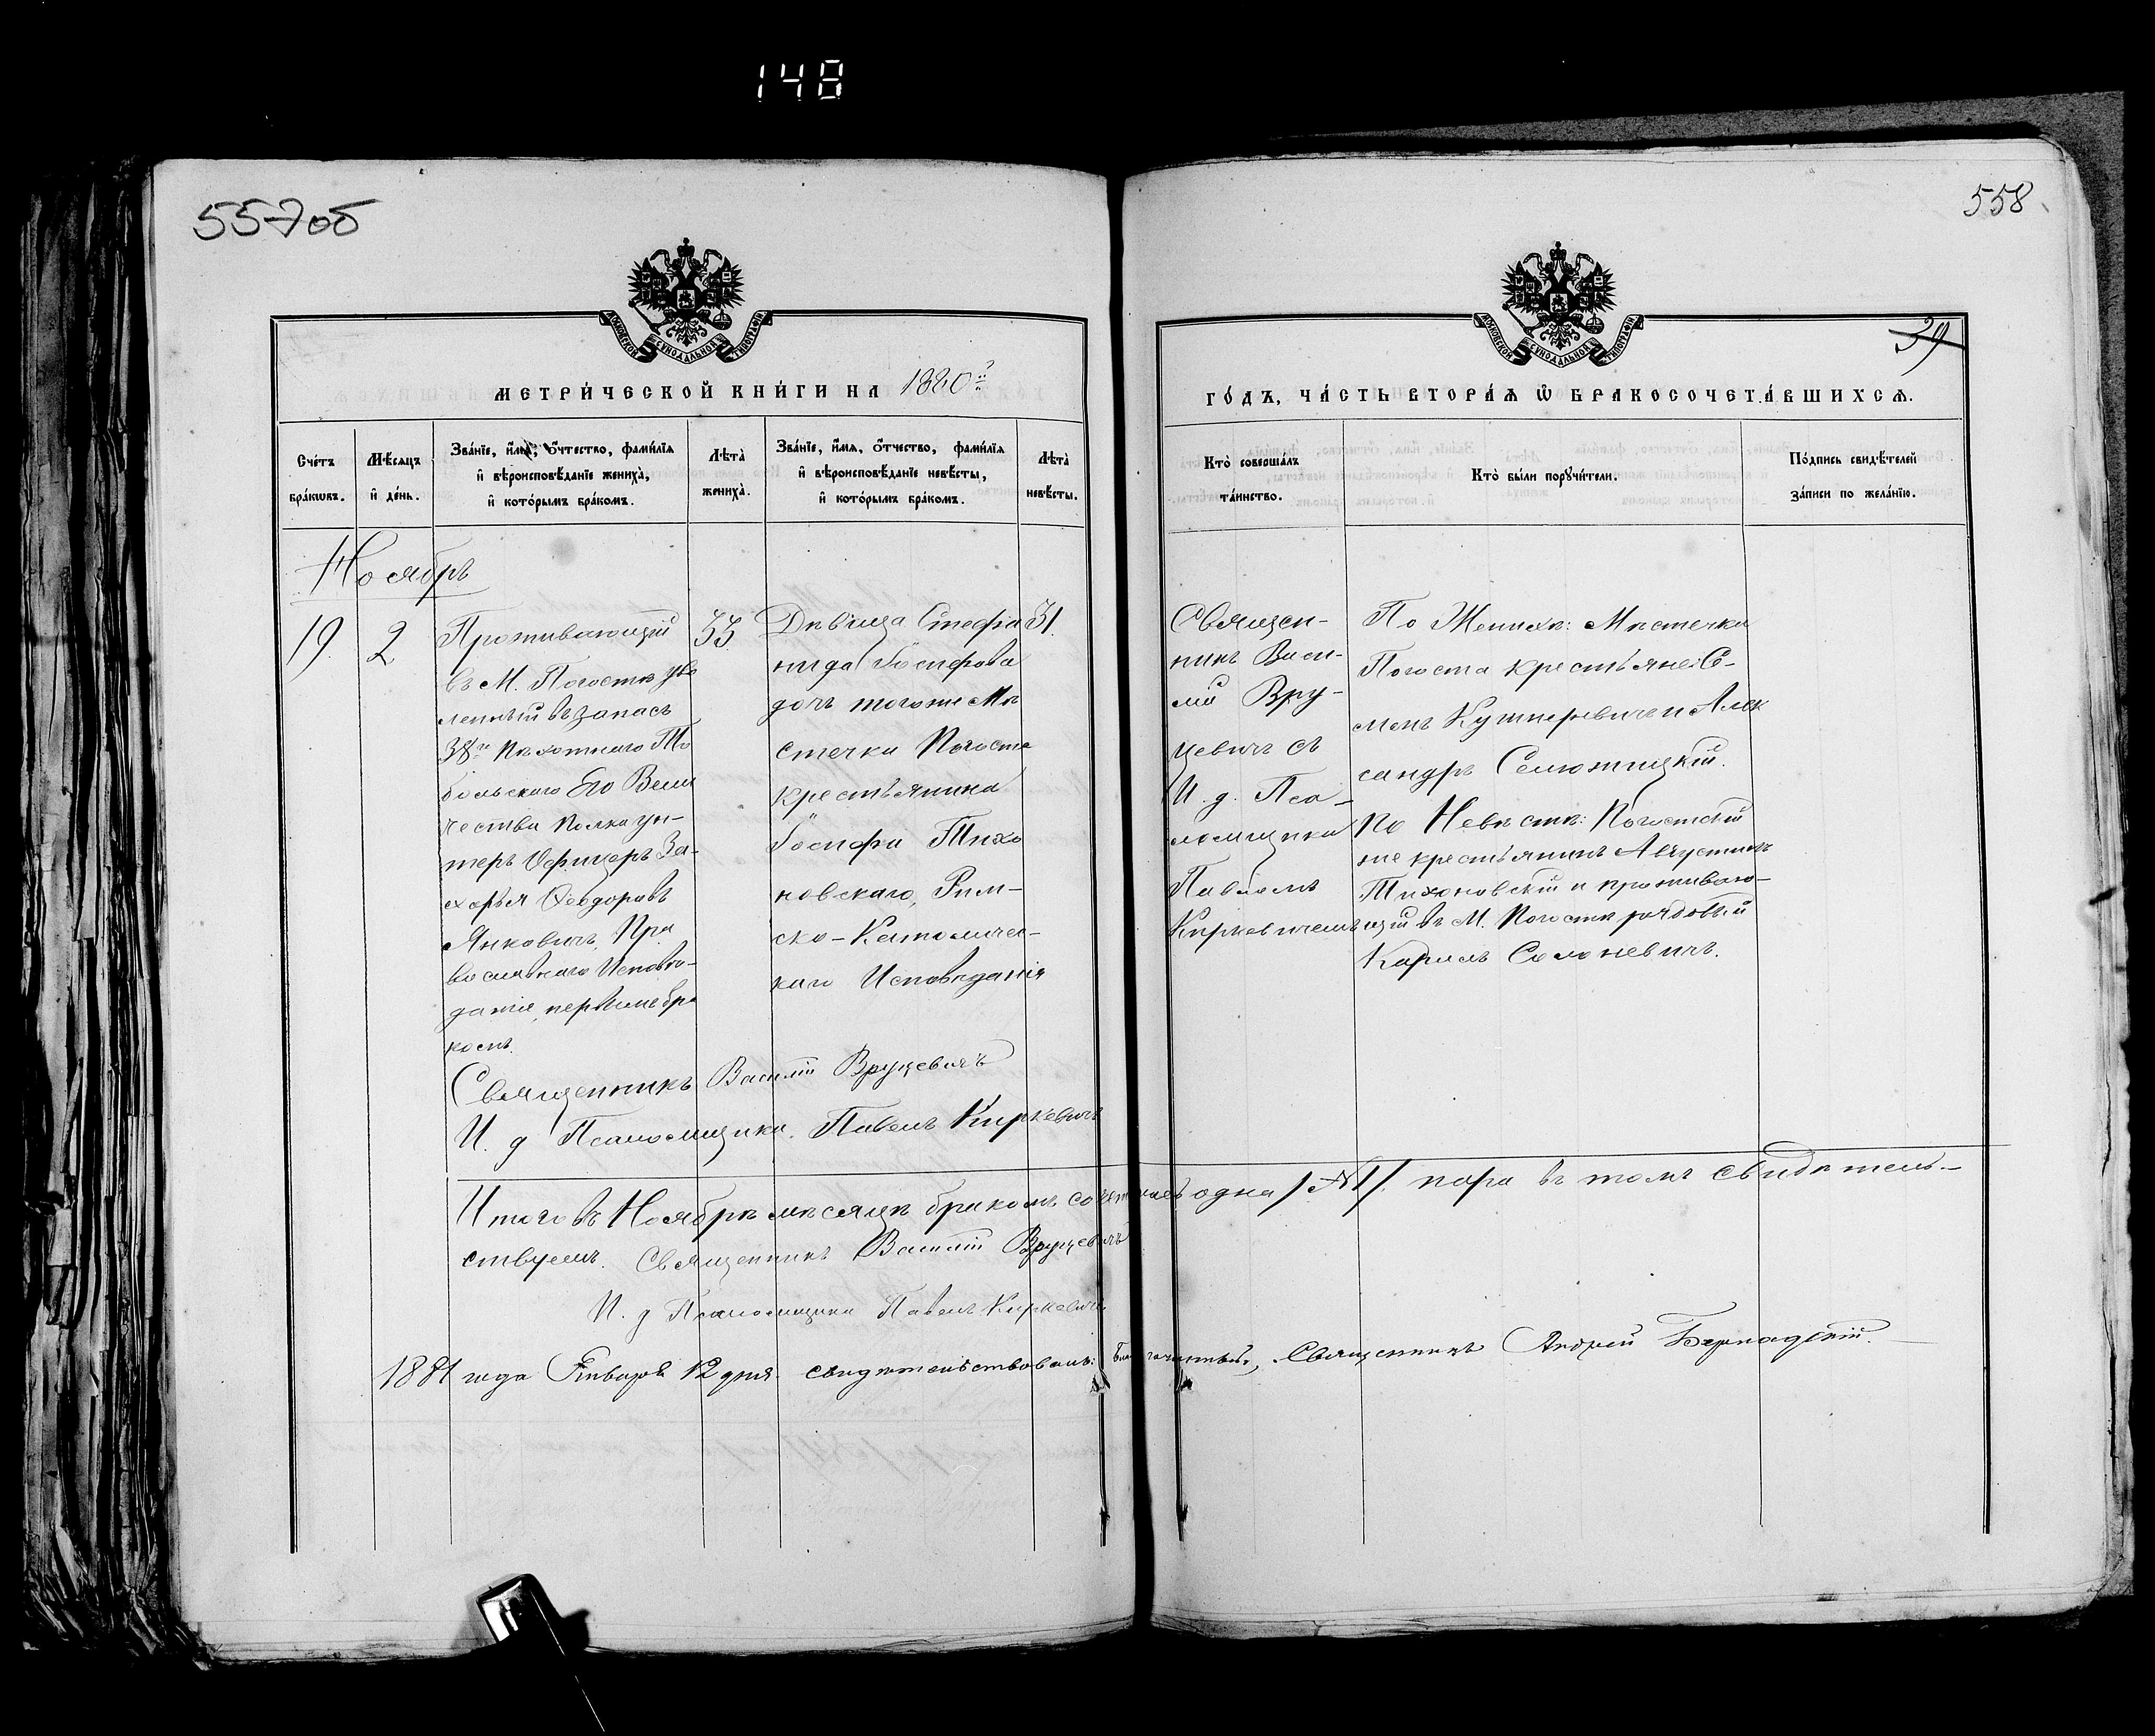 148
557об
558
39
МОСКОВСКОЙ СѴНОДАЛЬНОЙ ТИПОГРАФІИ
МОСКОВСКОЙ СѴНОДАЛЬНОЙ ТИПОГРАФІИ
МЕТРИ́ЧЕСКОЙ КНИ́ГИ НА 1880й
ГО́ДЪ, ЧА́СТЬ ВТОРА́Ѧ Ѡ҆ БРАКОСОЧЕТА́ВШИХСѦ.
Сче́тъ
бра́кѡвъ.
Мѣ́сяцъ
и҆ де́нь.
Зва́нїе, и҆́мѧ, ѻ҆́тчество, фами́лїѧ
и҆ вѣроисповѣ́данїе жениха̀,
и҆ кото́рымъ бра́комъ.
Лѣта̀
жениха̀.
Зва́нїе, и҆́мѧ, ѻ҆́тчество, фами́лїѧ
и҆ вѣроисповѣ́данїе невѣ́сты,
и҆ кото́рымъ бра́комъ.
Лѣта̀
невѣ́сты.
Кто̀ соверша́лъ
та́инство.
Кто̀ бы́ли порꙋчи́тели.
По́дпись свидѣ́телей
за́писи по жела́нїю.
Ноябрь
19.
2
Проживающій
въ М. Погостѣ уво
ленный въ запасъ
38го Пѣхотнаго То
больскаго Его Вели
чества полка ун-
теръ Офицеръ За-
харья Ѳеодоровъ
Янковичъ, Пра
вославнаго Исповѣ-
данія, первымъ бра
комъ.
33
Дѣвица Стефа
нида Іосифова
дочь тогоже Мѣ
стечка Погоста
крестьянина
Іосифа Тихо
новскаго, Рим-
ско-Католичес-
каго Исповѣданія
31.
Священ-
никъ Васи-
лій Вру-
цевичъ съ
И. д. Пса-
ломщика
Павломъ
Киркевичемъ
По Женихѣ: Мѣстечка
Погоста крестьяне: Се-
менъ Кутнеревичъ и Алек
сандръ Селютицкій.
По Невѣстѣ: Погостскій
же крестьянинъ Августинъ
Тихоновскій и проживаю-
щій въ М. Погостѣ рядовый
Карлъ Солоневичъ.
Священникъ Василій Вруцевичъ
И. д Псаломщика. Павелъ Киркевичъ
Итого въ Ноябрѣ мѣсяцѣ бракомъ сочеталась одна /№1/. пара въ томъ свидѣтель-
ствуемъ. Священникъ Василій Вруцевичъ
И. д Псаломщика Павелъ Киркевичъ
1881 года Января 12 дня. свидѣтельствовалъ: Благочинный, Священникъ Андрей Бернадскій.